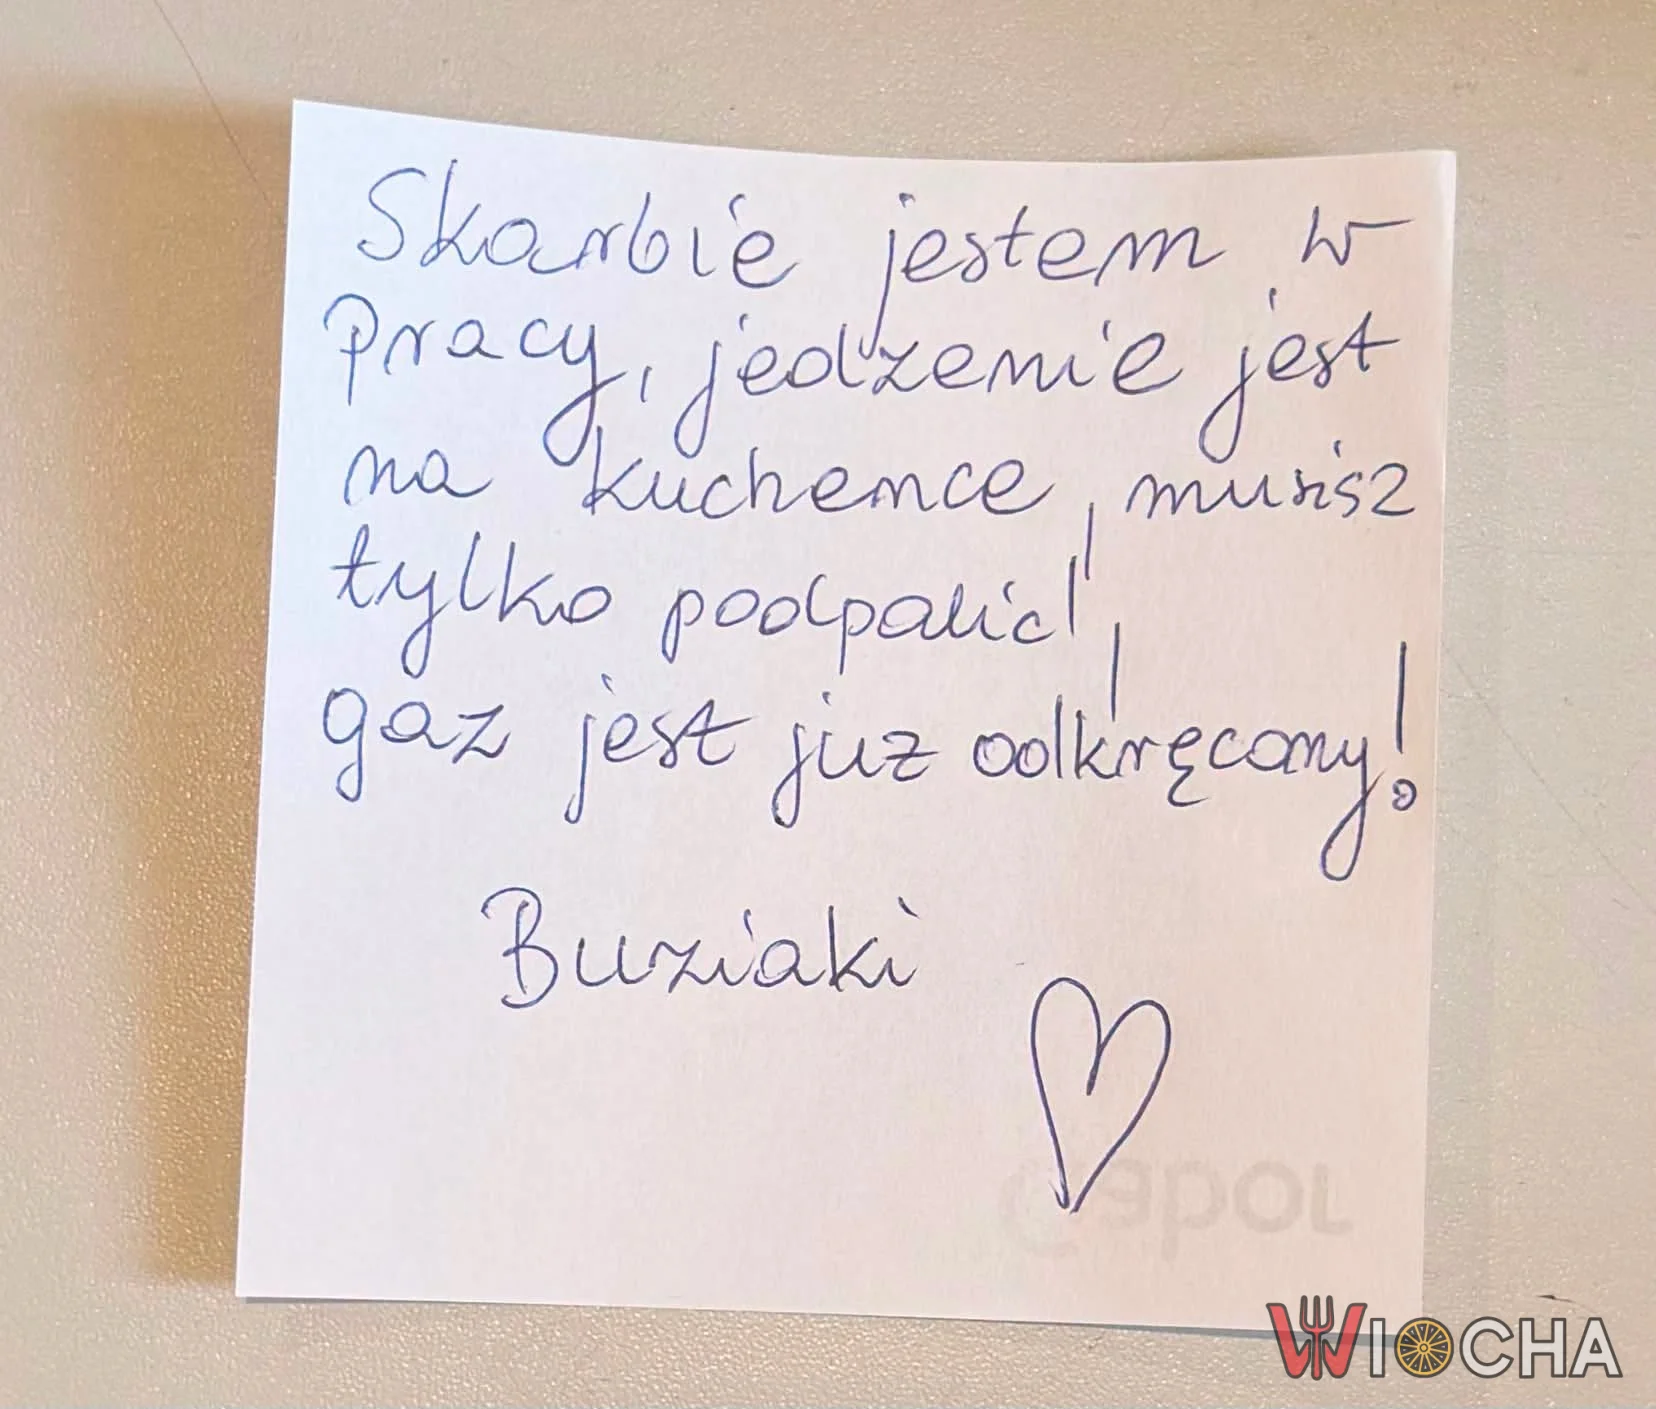 Skarbie jestem w
pracy, jedzenie jest
na kuchence, musisz
tylko podpalić,
gaz jest już odkręcony!
Buziaki
WIOCHA